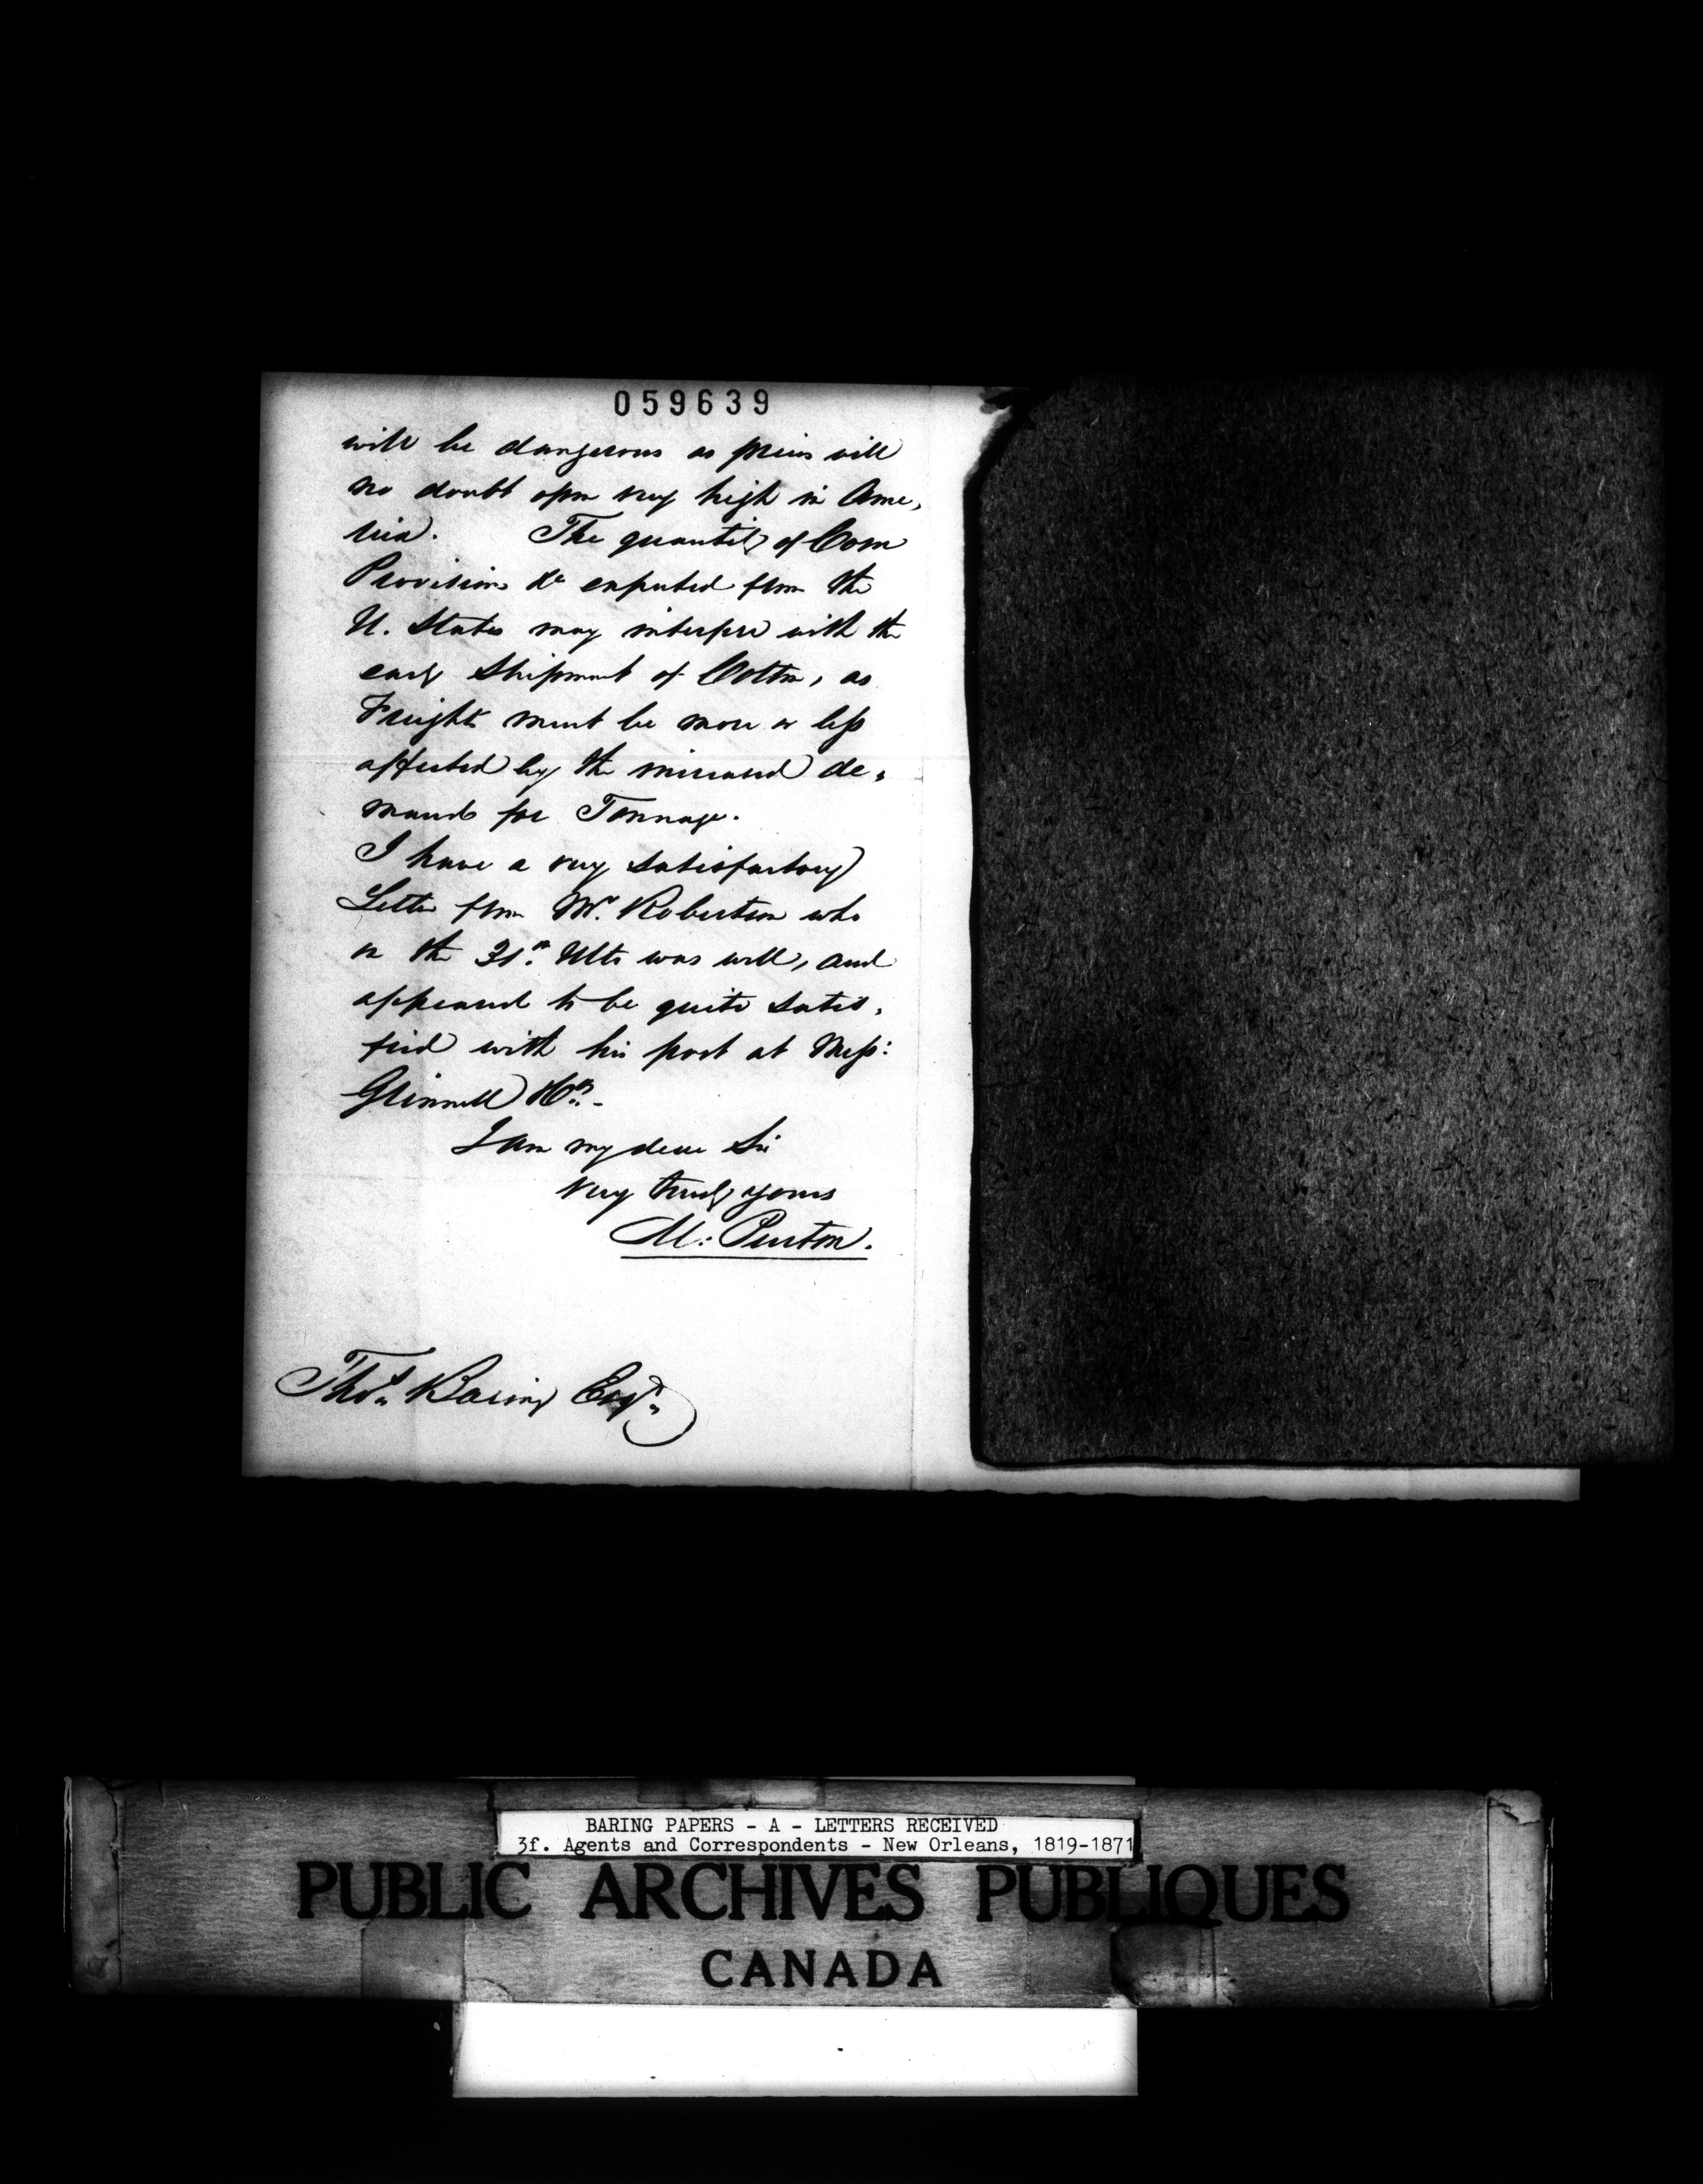 059639
will be dangerous as prices will
no doubt open very high in Ame,
rica. The quantity of Corn
Provisions &c exported from the
U. States may interfere with the
early Shipment of Cotton, as
Freights must be more or less
affected by the increased de,
mand for Tonnage.
I have a very satisfactory
Letter from Mr. Robertson who
on the 31st. Ulto was well, and
appeared to be quite satis,
fied with his post at Mess:
Grinnell & Co.
I am my dear Sir
very truly yours
M: Purton.
Thos. Baring Esqr.
BARING PAPERS - A - LETTERS RECEIVED
3f. Agents and Correspondents - New Orleans, 1819-1871
PUBLIC ARCHIVES PUBLIQUES
CANADA